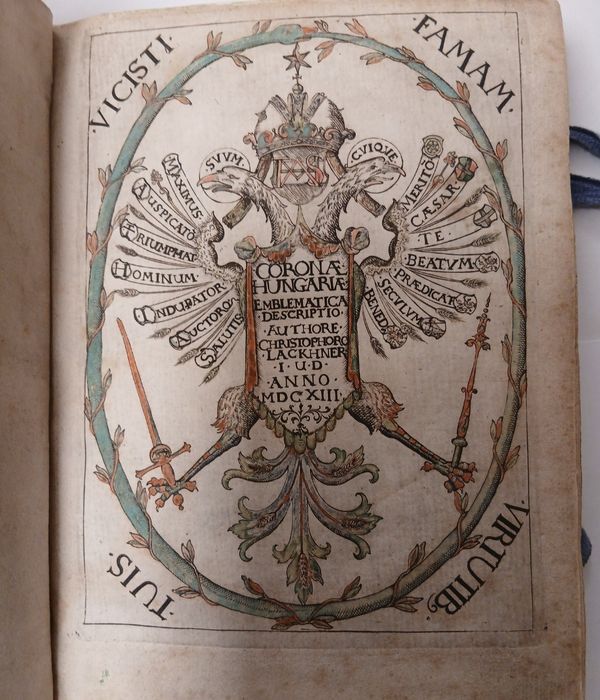 ·VICISTI· FAMAM·
SVVM CVIQVE
MAXIMUS·
AVSPICATO
TRIUMPHAT
HOMINUM·
SALUTIS
MERITO
CÆSAR
TE·
BEATVM·
PRÆDICAT
SECVLVM
CORONÆ
HUNGARIÆ
EMBLEMATICA
DESCRIPTIO·
·AUTHORE·
CHRISTOPHORO
·LACKHNER·
·I·U·D·
·ANNO·
MDCXIII·
TUIS· VIRTUTIB,